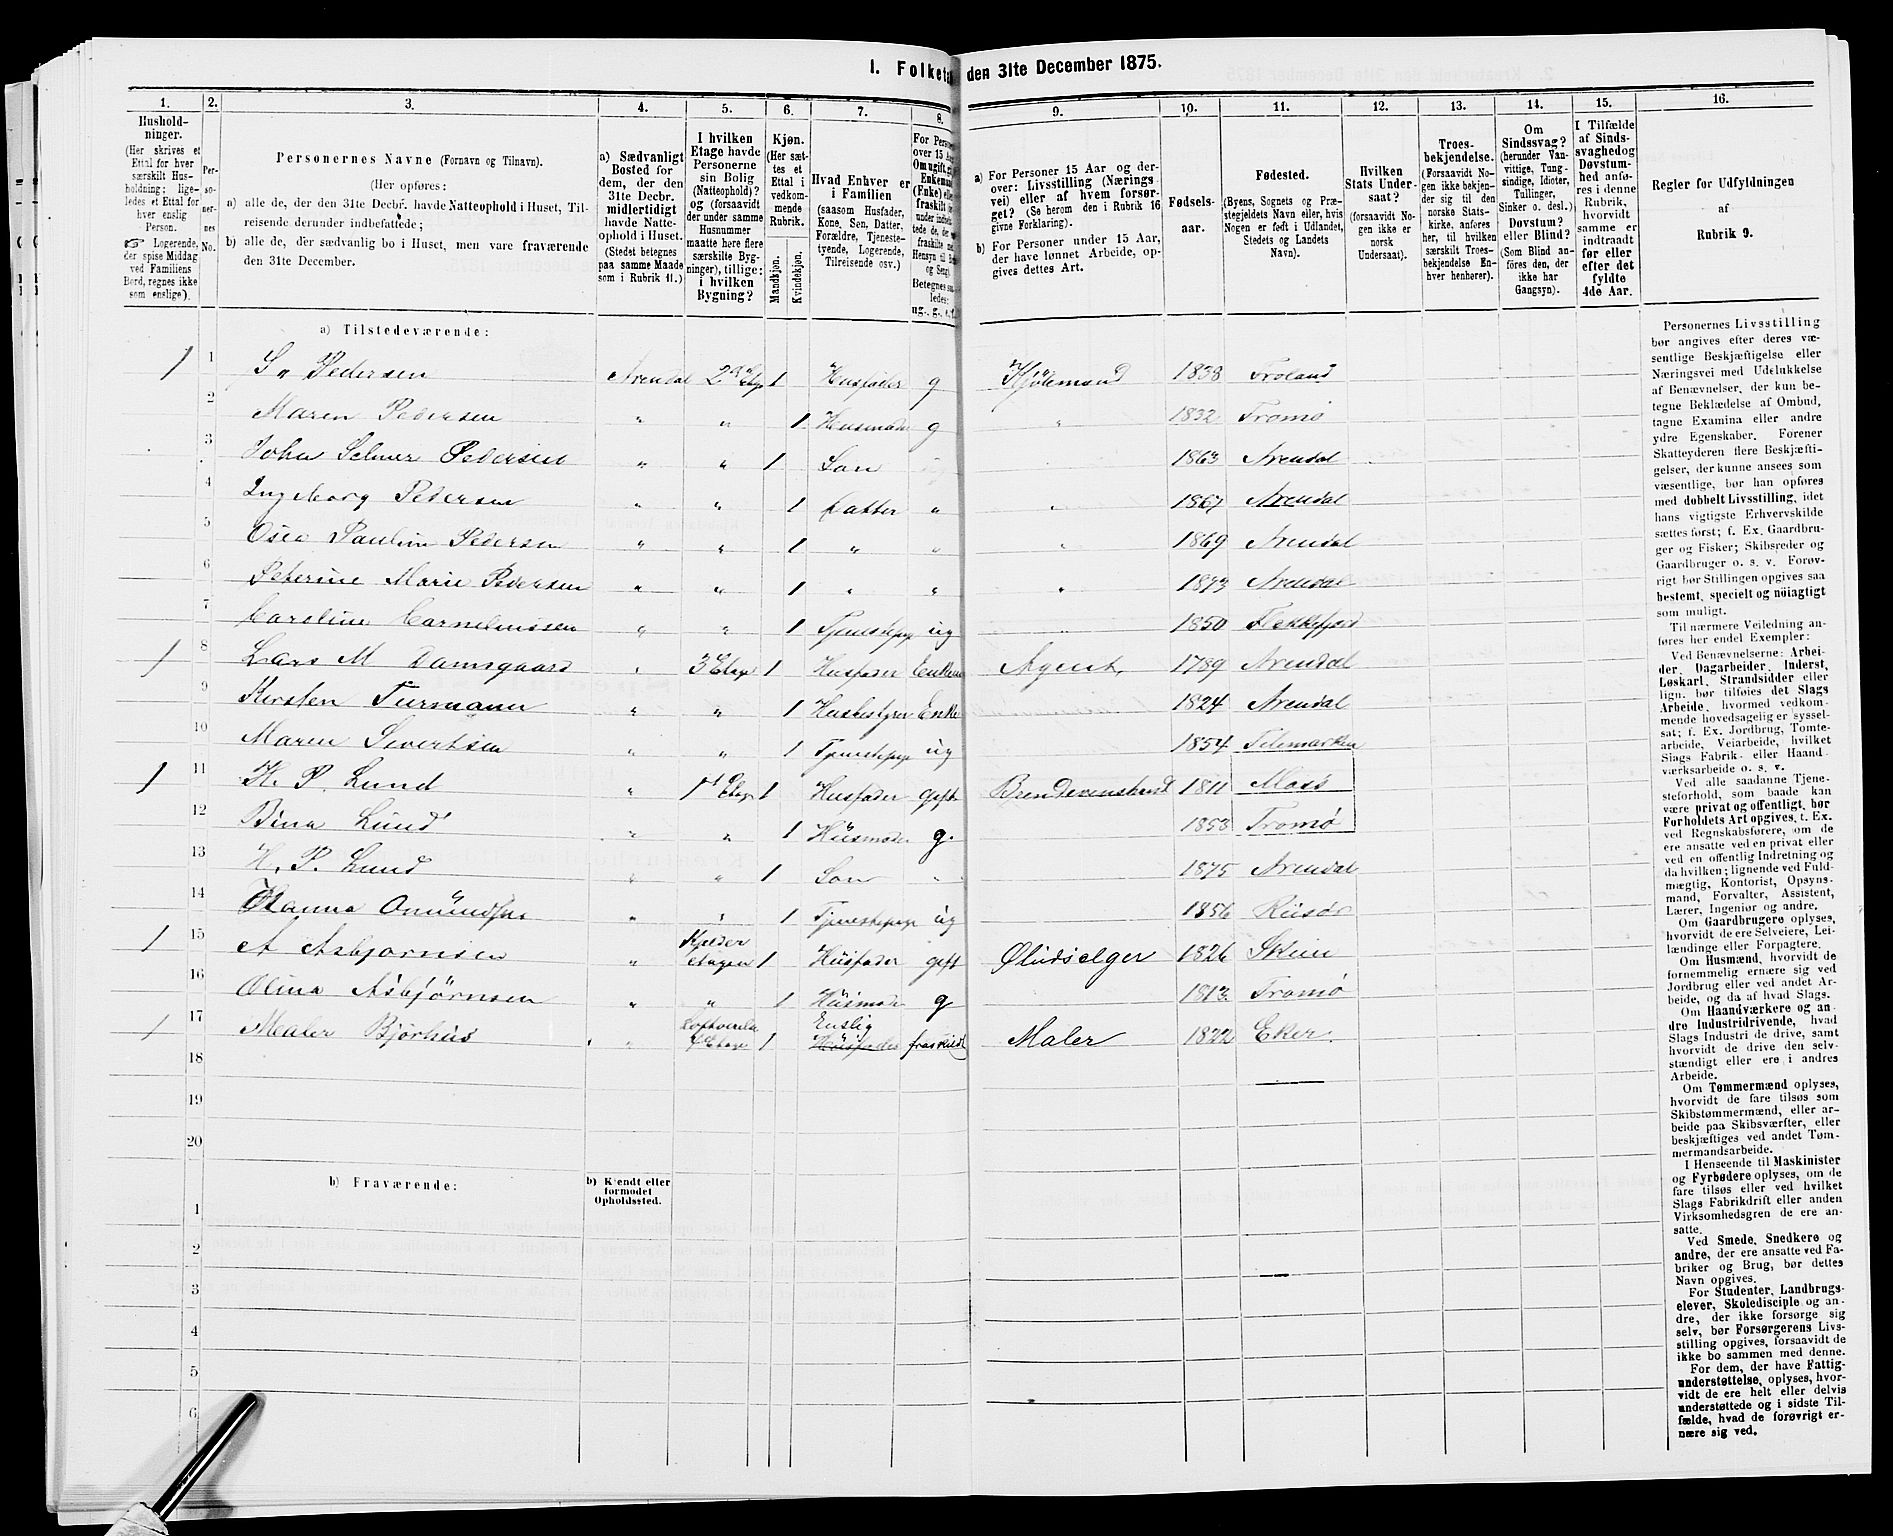 1. Folketæ den 31te December 1875.
1. 2. 3. 4. 5. 6. 7. 8. 9. 10. 11. 12. 13. 14. 15. 16.
Hushold-
ninger.
(Her skrives et
Ettal for hver
særskilt Hus-
holdning; lige-
ledes et Ettal for
hver enslig
Person.
☞ Logerende,
der spise Middag
ved Familiens
Bord, regnes ikke
som enslige).
Per-
so-
ner-
nes
No.
Personernes Navne (Fornavn og Tilnavn).
(Her opføres:
a) alle de, der den 31te Decbr. havde Natteophold i Huset, Til-
reisende derunder indbefattede;
b) alle de, der sædvanlig bo i Huset, men vare fraværende
den 31te December.
a) Sædvanligt
Bosted for
dem, der den
31te Decbr.
midlertidigt
havde Natte-
ophold i Huset.
(Stedet betegnes
paa samme Maade
som i Rubrik 11.)
I hvilken
Etage havde
Personerne
sin Bolig
(Natteophold)?
og (forsaavidt
der under samme
Husnummer
maatte høre flere
særskilte Byg-
ninger), tillige:
i hvilken
Bygning?
Kjøn.
(Her sæt-
tes et
Ettal i
vedkom-
mende
Rubrik.
Mandkjøn.
Kvindekjøn.
Hvad Enhver er
i Familien
(saasom Husfader,
Kone, Søn, Datter,
Forældre, Tjeneste-
tyende, Logerende,
Tilreisende osv.)
For Person
over 15 Aar
Om ugift, g
Enkemand
(Enke) elle
fraskilt
under indbef
tede de, der
fraskilte
Hensyn til B
og Seng).
Betegnes saa
ledes:
ug., g., e., f.
a) For Personer 15 Aar og der-
over: Livsstilling (Nærings
vei) eller af hvem forsør-
get? (Se herom den i Rubrik 16
givne Forklaring).
b) For Personer under 15 Aar,
der have lønnet Arbeide, op-
gives dettes Art.
Fødsels-
aar.
Fødested.
(Byens, Sognets og Præ-
stegjeldets Navn eller, hvis
Nogen er født i Udlandet,
Stedets og Landets
Navn).
Hvilken
Stats Under-
saat?
(forsaavidt No-
gen ikke er
norsk
Undersaat).
Troes-
bekjendelse.
(Forsaavidt No-
gen ikke bekjen-
der sig til den
norske Stats-
kirke, anføres
her, til hvilken
særskilt Troes-
bekjendelse En-
hver henhører).
Om
Sindssvag?
(herunder Van-
vittige, Tung-
sindige, Idioter,
Tullinger,
Sinker o. desl.)
Døvstum?
eller Blind?
(Som Blind an-
føres den, der
ikke har
Gangsyn).
I Tilfælde
af Sinds-
svaghed og
Døvstum-
hed anfø-
res i denne
Rubrik,
hvorvidt
samme er
indtraadt
før eller
efter det
fyldte
4de Aar.
Regler for Udfyldningen
af
Rubrik 9.
a) Tilstedeværende:
1 1 S. Pedersen Arendal 2den Etage 1 Husfader g Kjølemand 1838 Froland
2 Maren Pedersen " " 1 Husmoder g " 1832 Tromø
3 John Selmer Pedersen " " 1 Søn 1863 Arendal
4 Ingeborg Pedersen " " 1 Datter " " 1867 Arendal
5 Osea Pauline Pedersen " " 1 " " " 1869 Arendal
6 Peterine Marie Pedersen " " 1 " " " 1873 Arendal
7 Caroline Corneliussen " " 1 Tjenestepige ug " 1850 Flekkefjord
1 8 Lars M Damsgaard " 3 Etage 1 Husfader Enkem Agent 1789 Arendal
9 Kirsten Furmann " " 1 Husbestyrer Enke 1824 Arendal
10 Maren Sivertsen " " 1 Tjenestepige ug 1854 Telemarken
1 11 H. P. Lund " 1st Etage 1 Husfader gift 1811 Moss
12 Bina Lund " " 1 Husmoder g. 1853 Tromø
13 H. P. Lund " " 1 Søn " 1875 Arendal
14 Hanna Omundsen " " 1 Tjenestepige ug 1856 Risør
1 15 A Asbjornsen " Kjelder etagen 1 Husfader gift Øludselger 1826 Skien
16 Olina Asbjørnsen " " 1 Husmoder g 1813 Tromø
1 17 Maler Bjørhus " Etage 1 Enslig Husfader fraskildt Maler 1822 Eker.
18
19
20
b) Fraværende:
b) Kjendt eller
formodet
Opholdssted.
1
2
3
4
5
6
Personernes Livsstilling
bør angives efter deres væ-
sentlige Beskjæftigelse eller
Næringsvei med Udelukkelse
af Benævnelser, der kun be-
tegne Beklædelse af Ombud,
tagne Examina eller andre
ydre Egenskaber. Forener
Skatteyderen flere Beskjæfti-
gelser, der kunne ansees som
væsentlige, bør han opføres
med dobbelt Livsstilling, idet
hans vigtigste Erhvervskilde
sættes først; f. Ex. Gaardbru-
ger og Fisker; Skibsreder og
Gaardbruger o. s. v. Forøv-
rigt bør Stillingen opgives saa
bestemt, specielt og nöiagtigt
som muligt.
Til nærmere Veiledning an-
føres her endel Exempler:
Ved Benævnelserne: Arbei-
der, Dagarbeider, Inderst,
Løskarl, Strandsidder eller
lign. bør tilføies det Slags
Arbeide, hvormed vedkom-
mende hovedsagelig er syssel-
sat; f. Ex. Jordbrug, Tomte-
arbeide, Veiarbeide, hvilket
Slags Fabrik- eller Haand-
værksarbeide o. s. v.
Ved alle saadanne Tjene-
steforhold, som baade kan
være privat og offentligt, bør
Forholdets Art opgives, t. Ex.
ved Regnskabsførere, om de
ere ansatte ved en privat eller
ved en offentlig Indretning og
da hvilken; lignende ved Fuld-
mægtig, Kontorist, Opsyns-
mand, Forvalter, Assistent,
Lærer, Ingeniør og andre.
Om Gaardbrugere oplyses,
hvorvidt de ere Selveiere, Lei-
lændinge eller Forpagtere.
Om Husmænd, hvorvidt de
fornemmelig ernære sig ved
Jordbrug eller ved andet Ar-
beide, og da af hvad Slags.
Om Haandværkere og an-
dre Industridrivende, hvad
Slags Industri de drive, samt
hvorvidt de drive den selv-
stændigt eller ere i andres
Arbeide.
Om Tømmermænd oplyses,
hvorvidt de fare tilsøs som
Skibstømmermænd, eller ar-
beide paa Skibsværfter, eller
beskjæftiges ved andet Tøm-
mermandsarbeide.
I Henseende til Maskinister
og Fyrbødere oplyses, om de
fare tilsøs eller ved hvilket
Slags Fabrikdrift eller anden
Virksomhedsgren de ere an-
satte.
Ved Smede, Snedkere og
andre, der ere ansatte ved Fa-
briker og Brug, bør dettes
Navn opgives.
For Studenter, Landbrugs-
elever, Skoledisciple og an-
dre, der ikke forsørge sig
selv, bør Forsørgerens Livs-
stilling opgives, forsaavidt de
ikke bo sammen med denne.
For dem, der have Fattig-
understøttelse, oplyses, hvor-
vidt de ere helt eller delvis
understøttede og i sidste Til-
fælde, hvad de forøvrigt er-
nære sig ved.